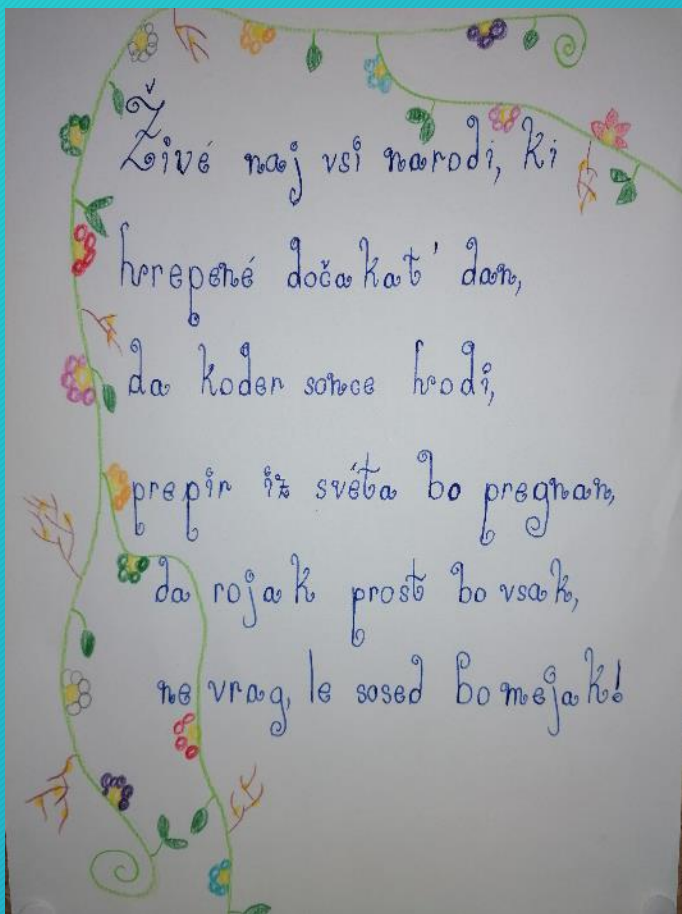 Živé naj vsi narodi, ki
hrepené dočakat' dan,
da koder sonce hodi,
prepir iz svéta bo pregnan,
da rojak prost bo vsak,
ne vrag, le sosed bo mejak!